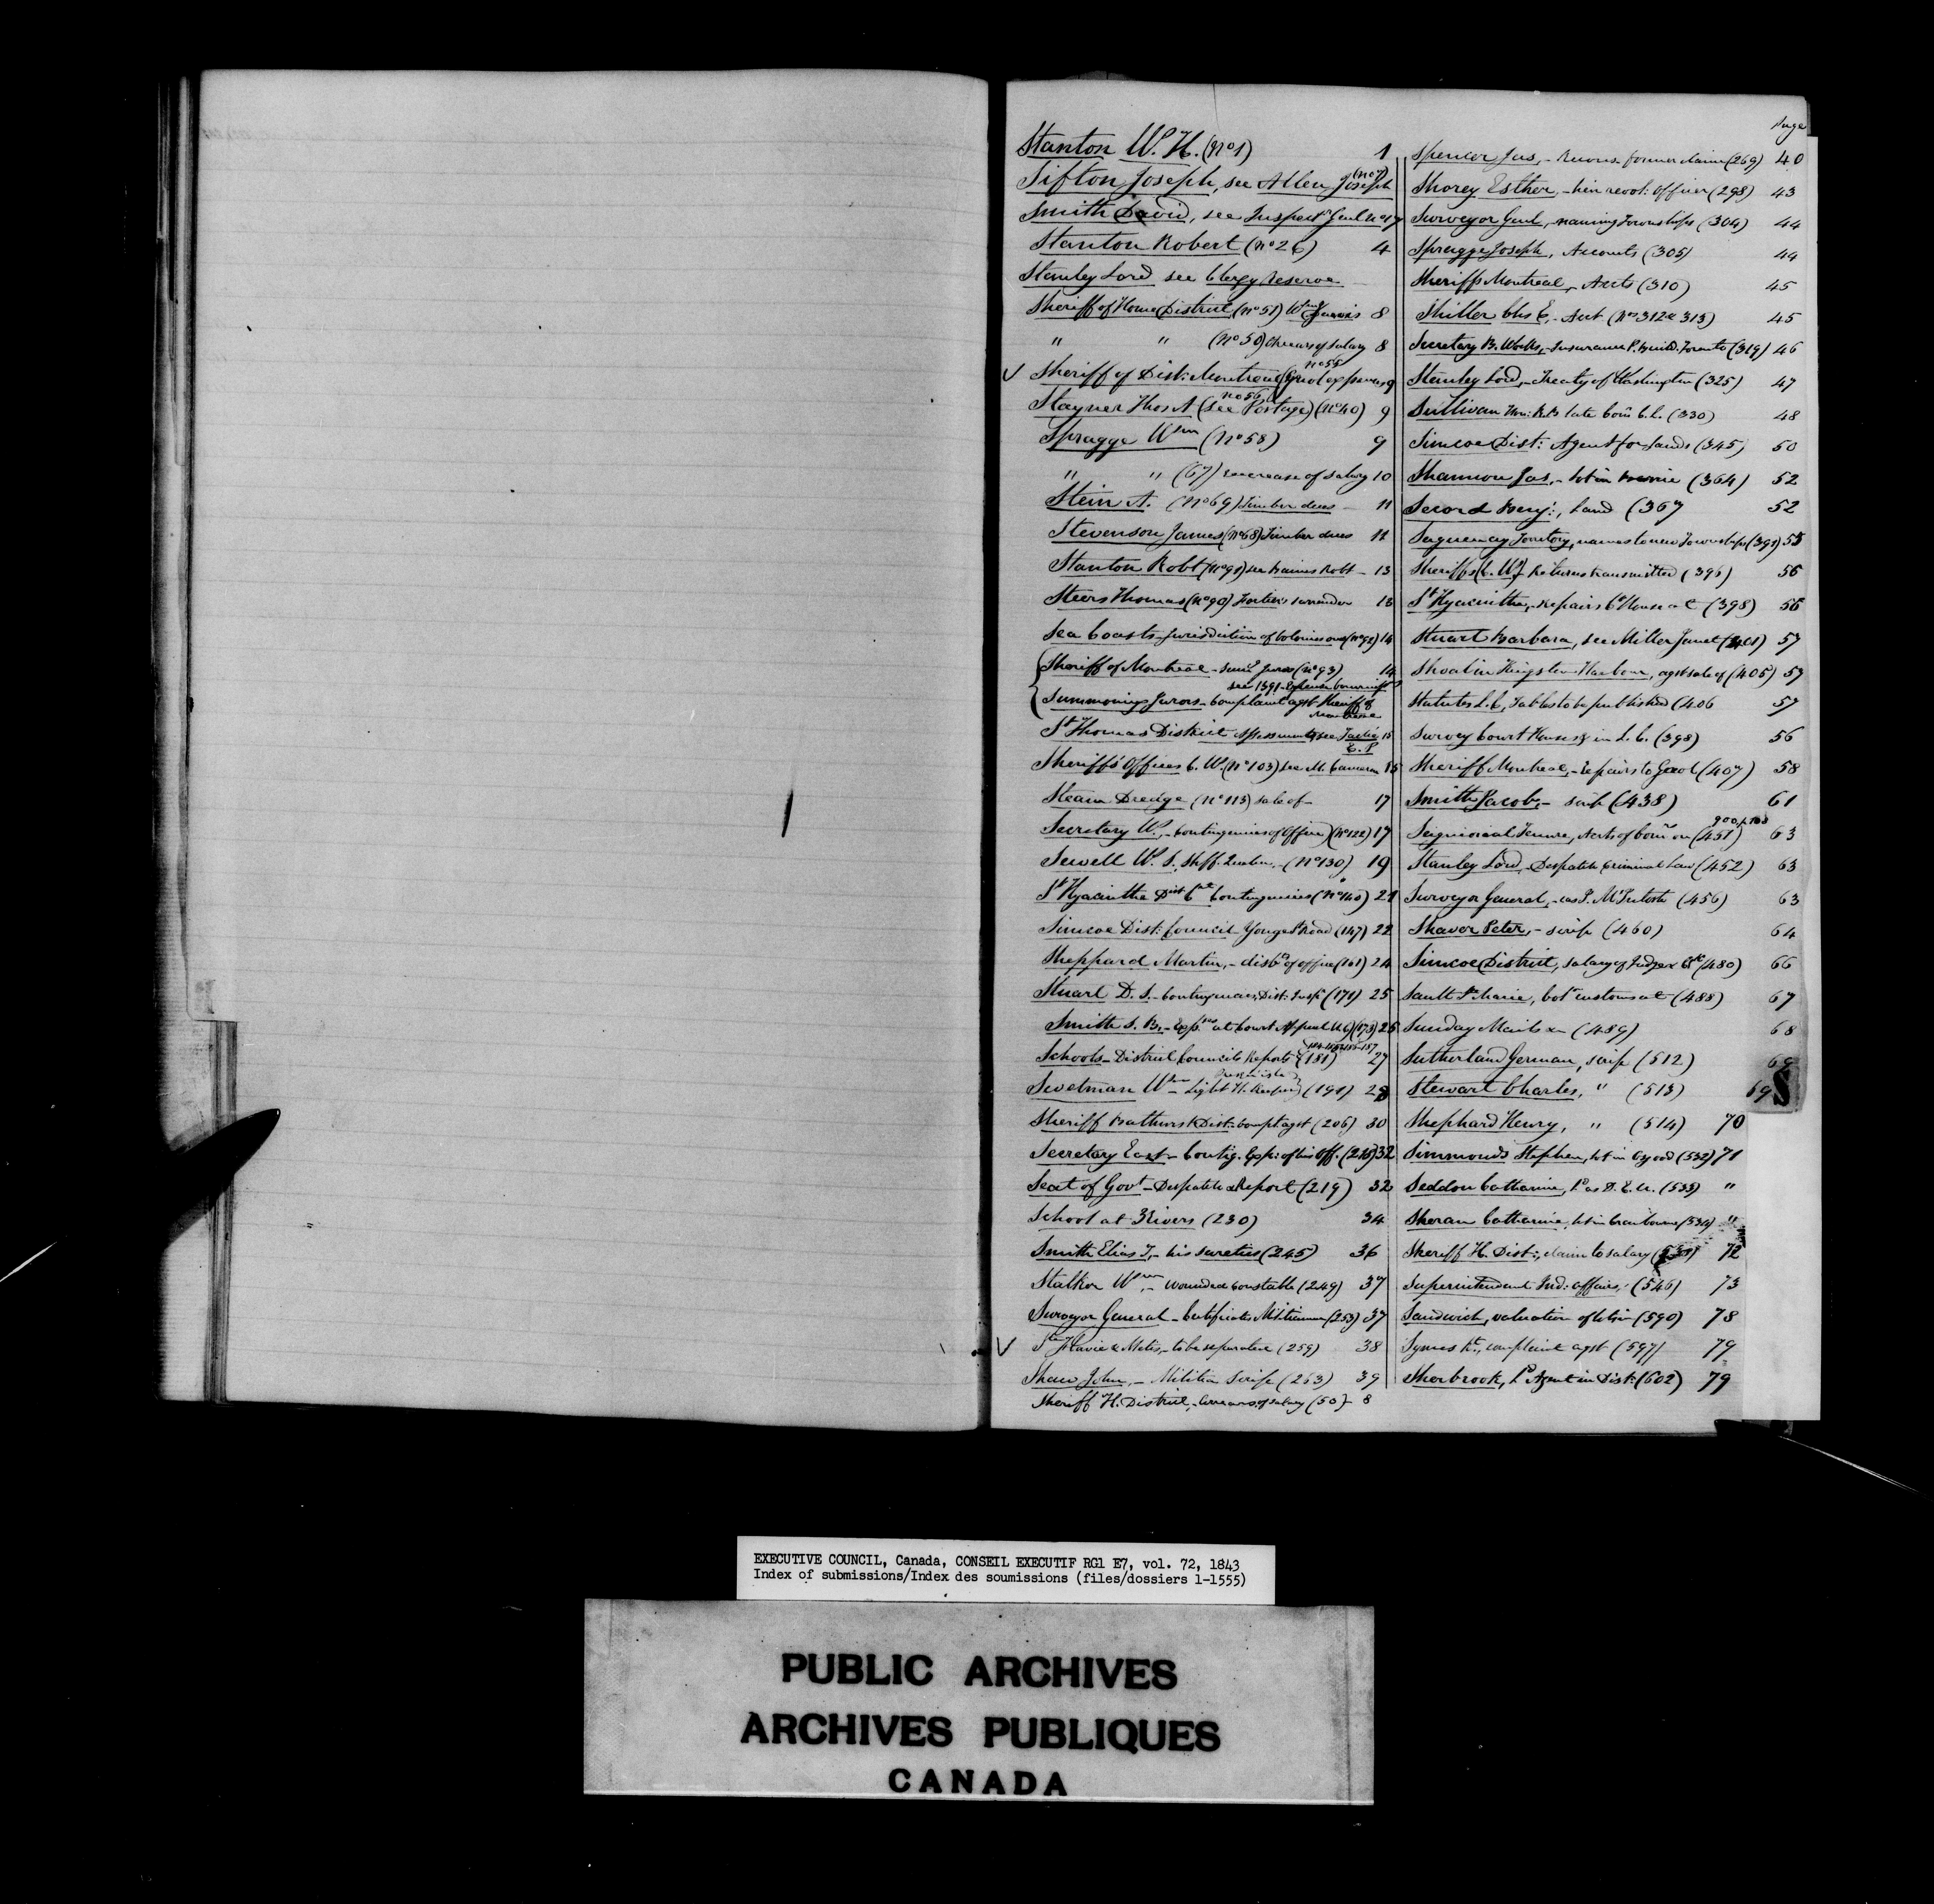 Stanton W. H. (No 1) 1
Sifton Joseph, see Allen Joseph (No 7)
Smith David, see Inspecr Genl No 17
Stanton Robert (No 26) 4
Stanley Lord see Clergy Reserve
Sheriff of Home District (No 51) Wm Jarvis 8
" " (No 50) Arrears of salary 8
Sheriff of Dist: Montreal Gaol expenses No 55 9
Stayner Thos A (see Postage) (No 40) No 56 9
Spragge Wm (No 58) 9
" " (67) increase of salary 10
Stein A. (No 69) Timber dues 11
Stevenson James (No 68) Timber dues 11
Stanton Robt (No 91) see Baines Robt 13
Steers Thomas (No 90) Fortier's surrender 13
Sea Coasts Jurisdiction of Colonies over (No 92) 14
Sheriff of Montreal - sumg Jurors (No 93) 14
see 1391
Summoning Jurors - complaint agst Sheriff of Montreal
St Thomas District Assessments, see Taché E. P. 15
Sheriffs' Offices C. W. (No 103) see M. Cameron 15
Steam Dredge (No 113) sale of 17
Secretary W., - Contingencies of Office (No 122) 17
Sewell W. S. Shff. Quebec - (No 130) 19
St Hyacinthe Dist Ct Contingencies (No 140) 21
Simcoe Dist: Council - Yonge St Road (147) 22
Sheppard Martin, - disbts of office (161) 24
Stuart D. S. - Contingencies, Dist: Inspr (171) 25
Smith S. B. - Exps at Court Appeal U.C. (173) 25
Schools - District Councils Reports (181) 184-185-186-187 27
Swetman Wm - Light H. Keeper (191) Presqu'isle 28
Sheriff Bathurst Dist: compt agst (206) 30
Secretary East - Contig. Exp: of his off. (218) 32
Seat of Govt - Despatch & Report (219) 32
School at 3 Rivers (230) 34
Smith Elias J, - his sureties (245) 36
Stalker Wm, - wounded Constable (249) 37
Surveyor General - Certificates Militiamen (253) 37
Flavie & Metis, - to be separated (259) 38
Shaw John, - Militia Scrip (263) 39
Sheriff H. District, - Arrears of salary (50) - 8
Page
Spencer Jas, - Renews former claim (269) 40
Shorey Esther, - heir revol: officer (298) 43
Surveyor Genl, - naming Townships (304) 44
Spragge Joseph, Accounts (305) 44
Sheriff Montreal, - Accts (310) 45
Shiller Chs E, - Acct (Nos 312 & 313) 45
Secretary B. Works, - Insurance P. Build. Toronto (319) 46
Stanley Lord, - Treaty of Washington (325) 47
Sullivan Hon: R B late Com C. L. (330) 48
Simcoe Dist: Agent for lands (345) 50
Shannon Jas, - lot in Barrie (364) 52
Secord Benj:, Land (367 52
Saguenay Territory, names to new Townships (391) 55
Sheriffs (C. W.) Returns transmitted (396) 56
St Hyacinthe, - repairs Ct House at (398) 56
Stuart Barbara, see Miller Janet (401) 57
Shoal in Kingston Harbour, agst sale of (405) 57
Statutes L. C, Tables to be published (406 57
Survey Court Houses in L. C. (398) 56
Sheriff Montreal, - Repairs to Gaol (407) 58
Smith Jacob, - scrip (438) 61
Seigniorial Tenure, Accts of Comr on (451) 63
Stanley Lord, Despatch Criminal Law (452) 63
Surveyor General, - as P. McIntosh (456) 63
Shaver Peter, - scrip (460) 64
Simcoe District, salary of Judge & (480) 66
Sault St Marie, Colr customs at (488) 67
Sunday Mails - (489) 68
Sutherland German, scrip (512) 69
Stewart Charles, " (513) 69
S
Shephard Henry, " (514) 70
Simmonds Stephen, lot in Osgood (532) 71
Seddon Catharine, Pt as D. E. U. (533) "
Sheran Catharine, lot in Cranbourne (534) "
Sheriff H. Dist:, claim to salary 72
Superintendant Ind: affairs, (546) 73
Sandwich, valuation of lots in (590) 78
Symes Rt, complaint agst (597) 79
Sherbrook, Pt Agent in Dist: (602) 79
EXECUTIVE COUNCIL, Canada, CONSEIL EXECUTIF RG1 E7, vol. 72, 1843
Index of submissions/Index des soumissions (files/dossiers 1-1555)
PUBLIC ARCHIVES
ARCHIVES PUBLIQUES
CANADA